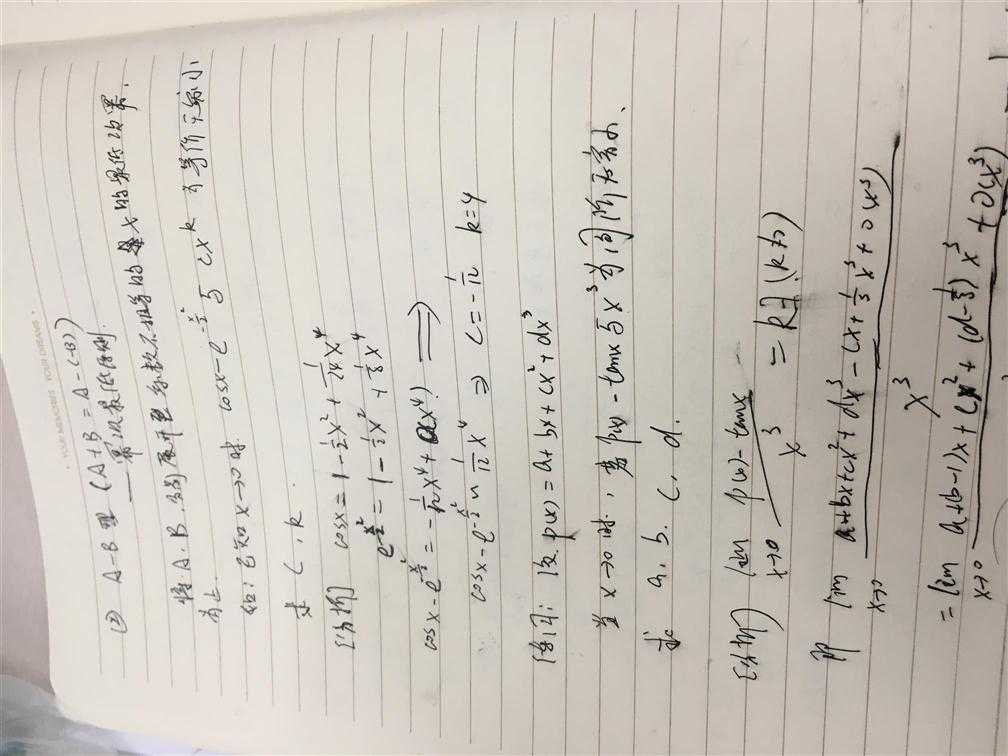 YOUR MEMORIES YOUR DREAMS
② A-B型 (A+B = A-(-B))
—— 幂次最低原则
将A、B分别展开至系数不相等的x的最低次幂
为止
如: 已知x→0时 cosx-e^{-x²/2} 与 cx^k 为等价无穷小
求 c, k
[分析] cosx = 1-\frac{1}{2}x²+\frac{1}{24}x⁴
e^{-x²/2} = 1-\frac{1}{2}x²+\frac{1}{8}x⁴
cosx-e^{-x²/2} = -\frac{1}{12}x⁴+o(x⁴) ⟹
cosx-e^{-x²/2} ~ -\frac{1}{12}x⁴ ⇒ c=-\frac{1}{12} k=4
[例]: 设 p(x) = a+bx+cx²+dx³
当x→0时, 若p(x)-tanx与x³为同阶无穷小、
求 a, b, c, d.
[分析] lim_{x→0} \frac{p(x)-tanx}{x³} = k (k≠0)
即 lim_{x→0} \frac{a+bx+cx²+dx³-(x+\frac{1}{3}x³+o(x³))}{x³}
= lim_{x→0} \frac{a+(b-1)x+cx²+(d-\frac{1}{3})x³+o(x³)}{}